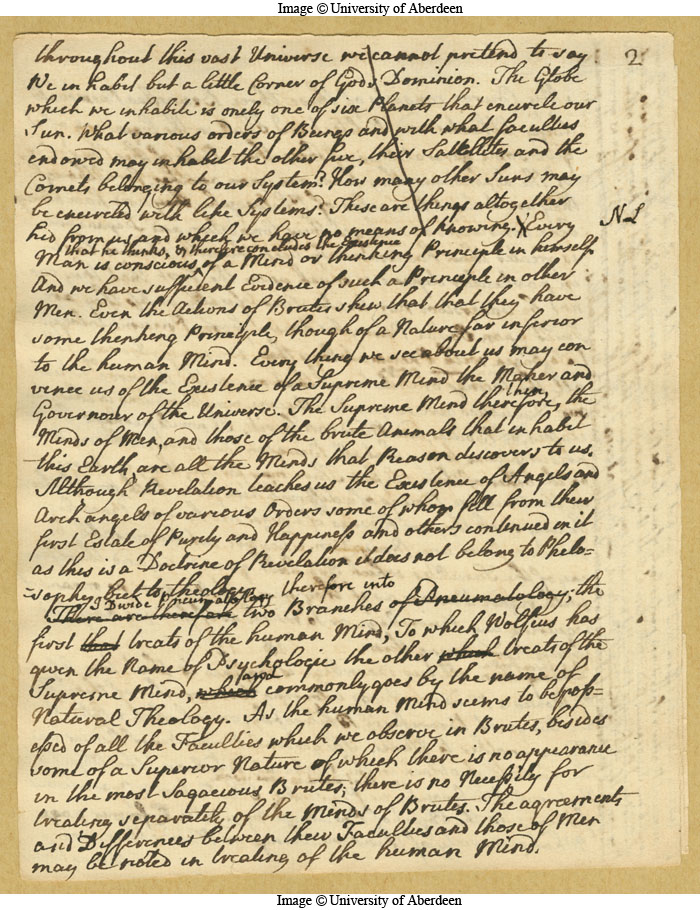 Image © University of Aberdeen
2
throughout this vast Universe we cannot pretend to say
We inhabit but a little Corner of Gods Dominion. The Globe
which we inhabite is onely one of six Planets that encircle our
Sun. What various orders of Beings and with what faculties
endowed may inhabit the other five, their Sattellites and the
Comets belonging to our System? How many other Suns may
be encircled with like Systems? These are things altogether
hid from us and which we have no means of knowing. Every
NL
that he thinks, & therefore concludes the Existence
Man is conscious of a Mind or thinking Principle in himself
And we have sufficient Evidence of such a Principle in other
Men. Even the Actions of Brutes shew that that they have
some thenking Principle, though of a Nature far inferior
to the human Mind. Every thing we see about us may con
vince us of the Existence of a Supreme Mind the Maker and
Governour of the Universe. The Supreme Mind therefore, the
Minds of Men, and those of the brute Animals that inhabit
this Earth, are all the Minds that Reason discovers to us.
Although Revelation teaches us the Existence of Angels and
Arch angels of various Orders some of whom fell from their
first Estate of Purity and Happiness and others continued in it
as this is a Doctrine of Revelation it does not belong to Philo=
=sophy but to theology
I Divide Pneumatology therefore into
There are therefore two Branches of Pneumatology; the
first that treats of the human Mind, To which Wolfius has
given the Name of Psychologie the other which treats of the
and
Supreme Mind, which commonly goes by the name of
Natural Theology. As the human Mind seems to be poss=
essed of all the Faculties which we observe in Brutes, besides
some of a Superior Nature of which there is no appearance
in the most Sagacious Brutes; there is no Necessity for
treating separately of the Minds of Brutes. The agreements
and Differences between their Faculties and those of Men
may be noted in treating of the human Mind.
Image © University of Aberdeen